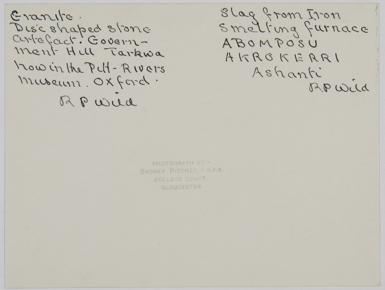 Granite.
Disc shaped stone
artefact. Govern-
ment Hill Tarkwa
now in the Pitt-Rivers
museum. Oxford.
R P Wild
Slag from Iron
Smelting furnace
ABOMPOSU
AKROKERRI
Ashanti
R P Wild
PHOTOGRAPH BY
SYDNEY PITCHER, F.R.P.S.
COLLEGE COURT,
GLOUCESTER